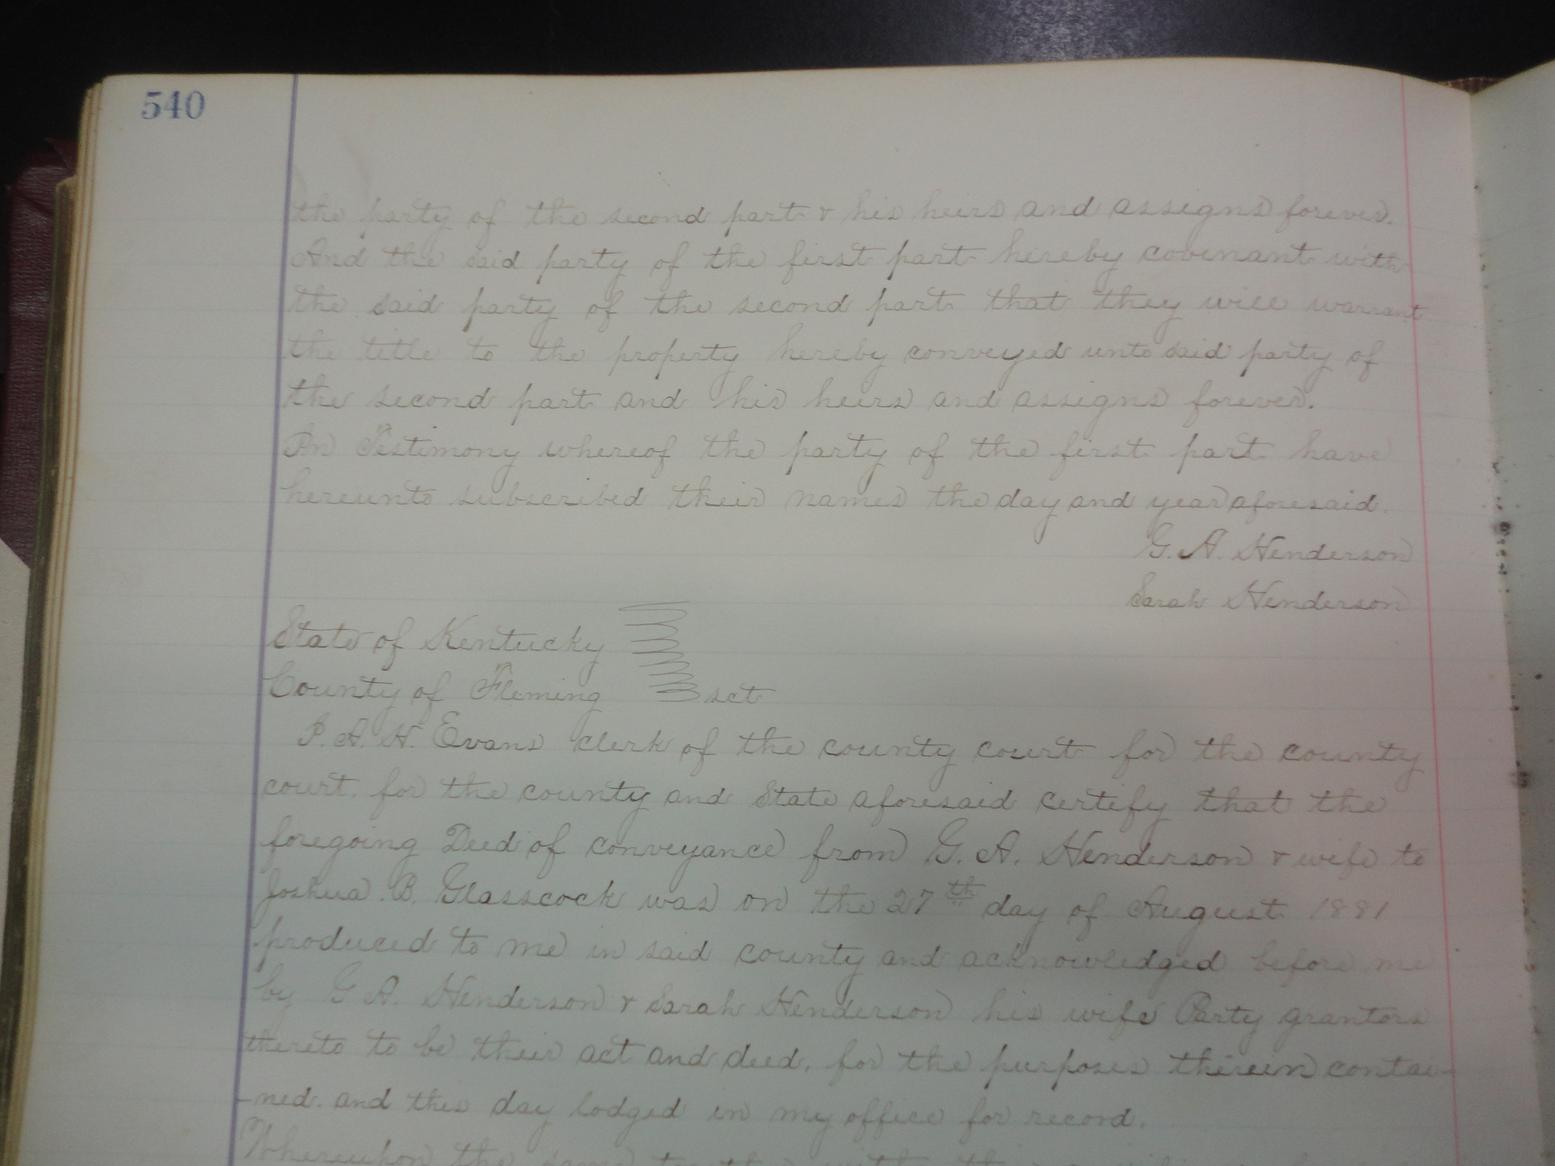 540
the party of the second part & his heirs and assigns forever.
And the said party of the first part hereby covenant with
the said party of the second part that they will warrant
the title to the property hereby conveyed unto said party of
the second part and his heirs and assigns forever.
In Testimony whereof the party of the first part have
hereunto subscribed their names the day and year aforesaid.
G. A. Henderson
Sarah Henderson
State of Kentucky
County of Fleming sct
I. A. H. Evans clerk of the county court for the county
court for the county and State aforesaid certify that the
foregoing Deed of conveyance from G. A. Henderson & wife to
Joshua B. Glasscock was on the 27th day of August 1881
produced to me in said county and acknowledged before me
by G A. Henderson & Sarah Henderson his wife Party grantors
thereto to be their act and deed, for the purposes therein contai-
-ned. and this day lodged in my office for record.
Whereupon the same